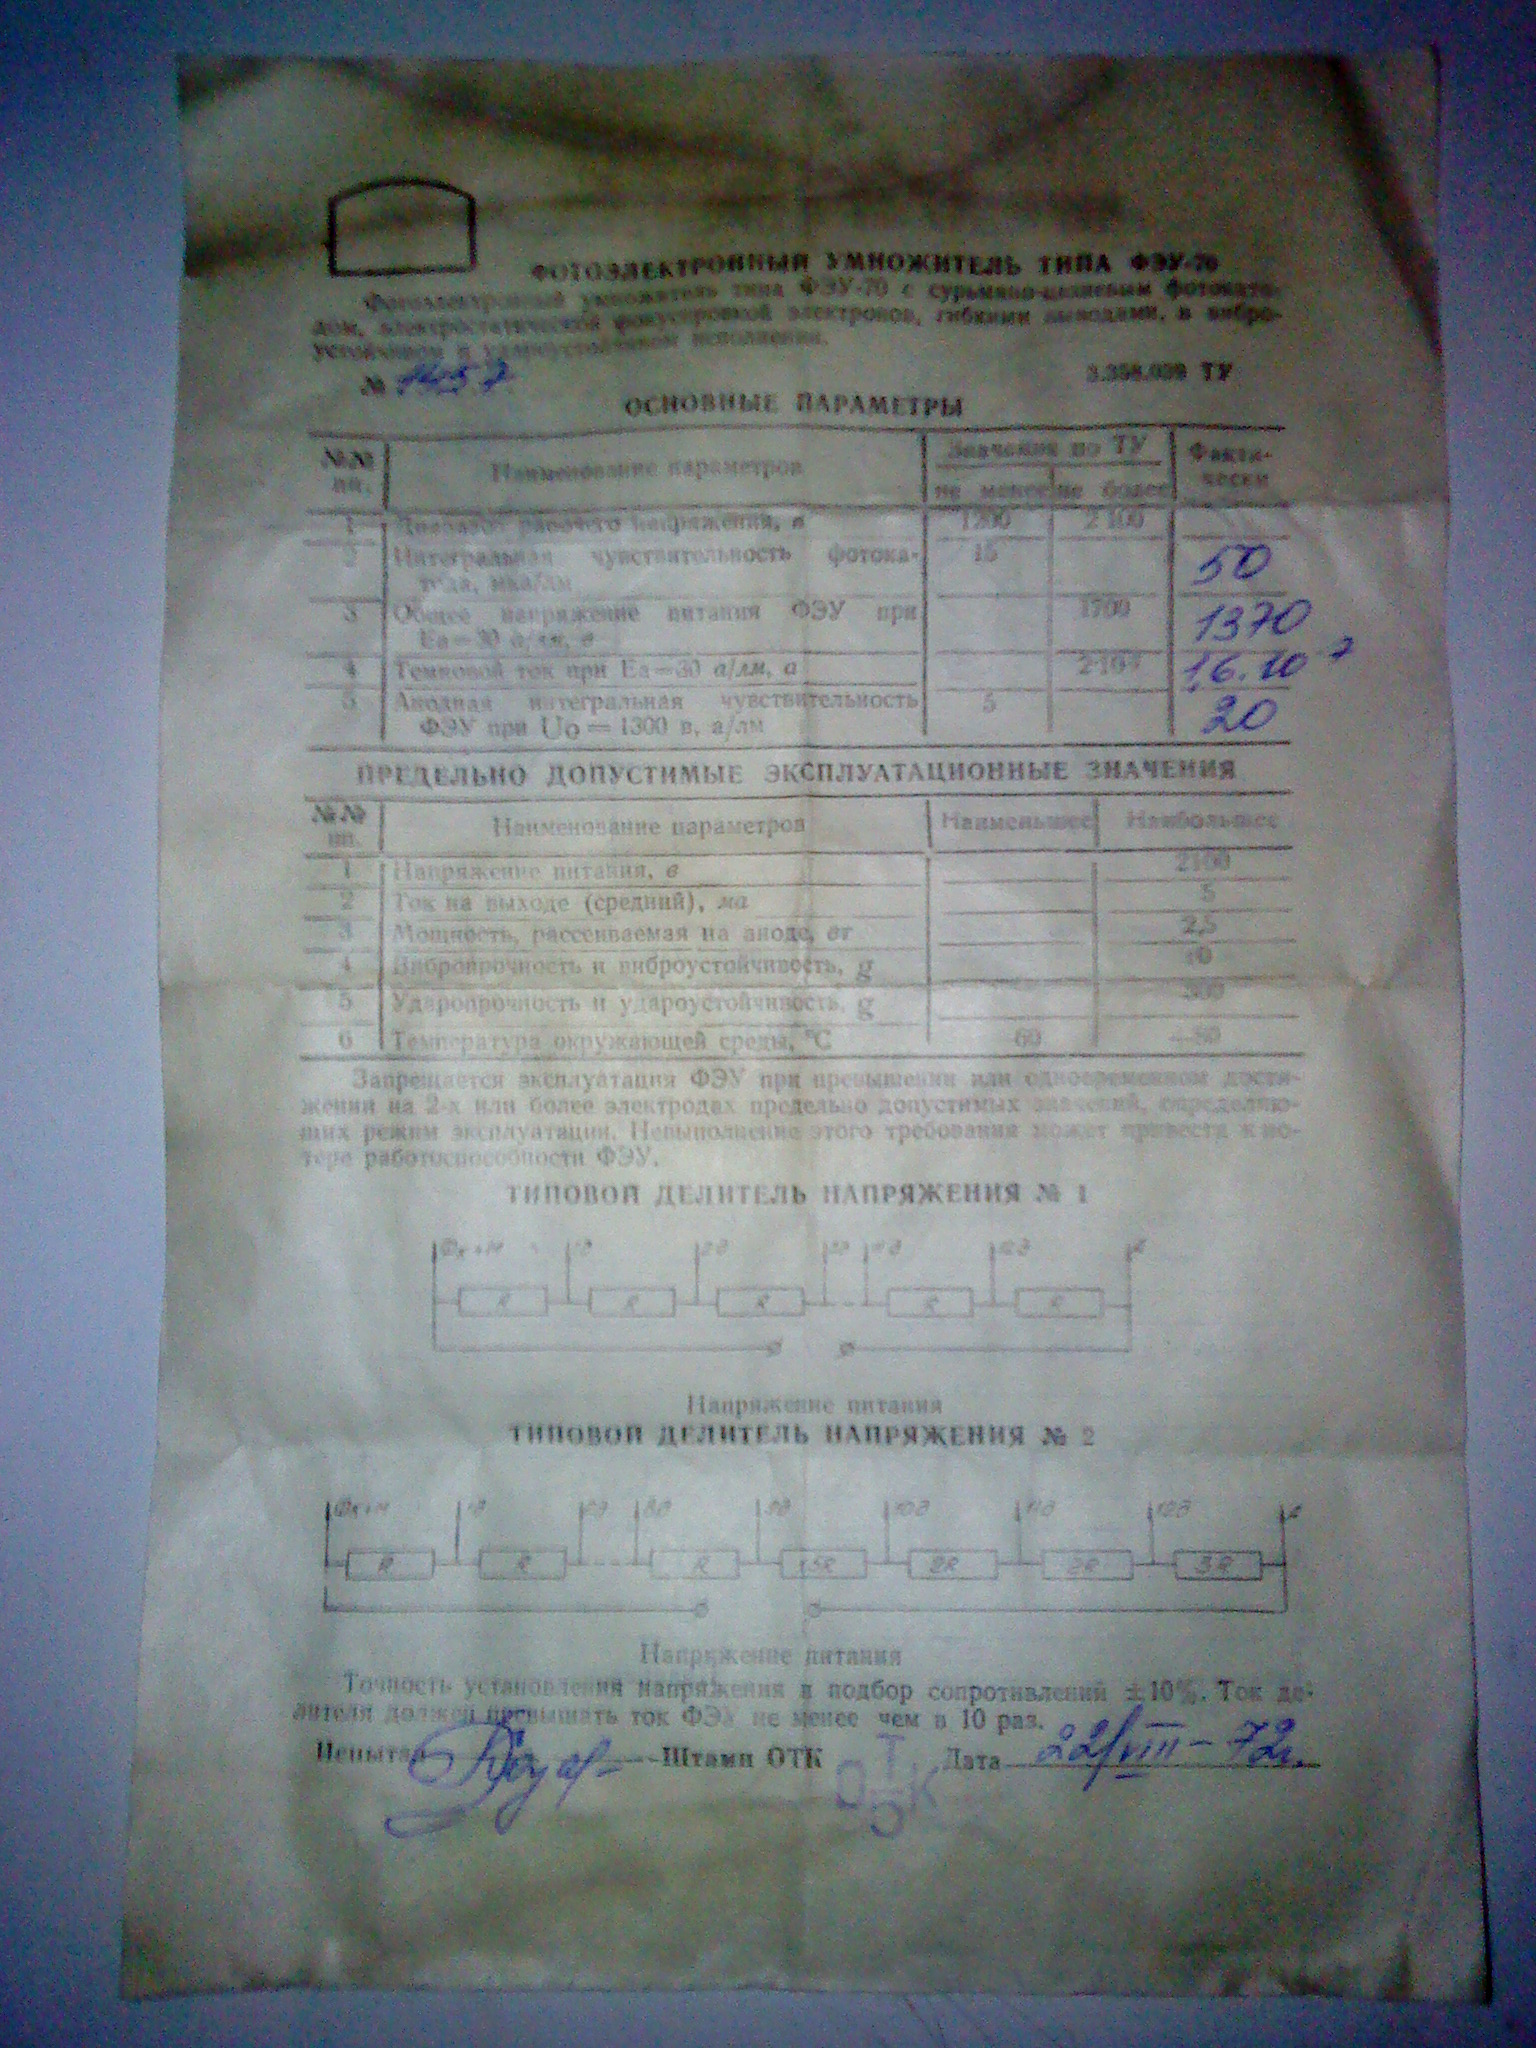 ФОТОЭЛЕКТРОННЫЙ УМНОЖИТЕЛЬ ТИПА ФЭУ-70
Фотоэлектронный умножитель типа ФЭУ-70 с сурьмяно-цезиевым фотокато-
дом, электростатической фокусировкой электронов, гибкими выводами, в вибро-
устойчивом и удароустойчивом исполнении.
№
3.358.039 ТУ
ОСНОВНЫЕ ПАРАМЕТРЫ
№№ пп. Наименование параметров Значения по ТУ Факти-
не менее не более чески
1 Диапазон рабочего напряжения, в 1200 2100
2 Интегральная чувствительность фотока- 15 50
тода, мка/лм
3 Общее напряжение питания ФЭУ при 1700 1370
Еа=30 а/лм, в
4 Темновой ток при Еа=30 а/лм, а 1,6.10-7
5 Анодная интегральная чувствительность 5 20
ФЭУ при Uо = 1300 в, а/лм
ПРЕДЕЛЬНО ДОПУСТИМЫЕ ЭКСПЛУАТАЦИОННЫЕ ЗНАЧЕНИЯ
№№ пп. Наименование параметров Наименьшее Наибольшее
1 Напряжение питания, в 2100
2 Ток на выходе (средний), ма 5
3 Мощность, рассеиваемая на аноде, вт 2,5
4 Вибропрочность и виброустойчивость, g 10
5 Ударопрочность и удароустойчивость, g 300
6 Температура окружающей среды, °С 60
Запрещается эксплуатация ФЭУ при превышении или одновременном дости-
жении на 2-х или более электродах предельно допустимых значений, определяю-
щих режим эксплуатации. Невыполнение этого требования может привести к по-
тере работоспособности ФЭУ.
ТИПОВОЙ ДЕЛИТЕЛЬ НАПРЯЖЕНИЯ № 1
Фк+М 1д 2д 12д
R R R R R
Напряжение питания
ТИПОВОЙ ДЕЛИТЕЛЬ НАПРЯЖЕНИЯ № 2
Фк+М 1д 8д 9д 10д 11д 12д
R R R 1,5R 2R 2R 3R
Напряжение питания
Точность установления напряжения и подбор сопротивлений ±10%. Ток де-
лителя должен превышать ток ФЭУ не менее чем в 10 раз.
Испытал Штамп ОТК Дата 22/VIII-72г.
ОТК
5